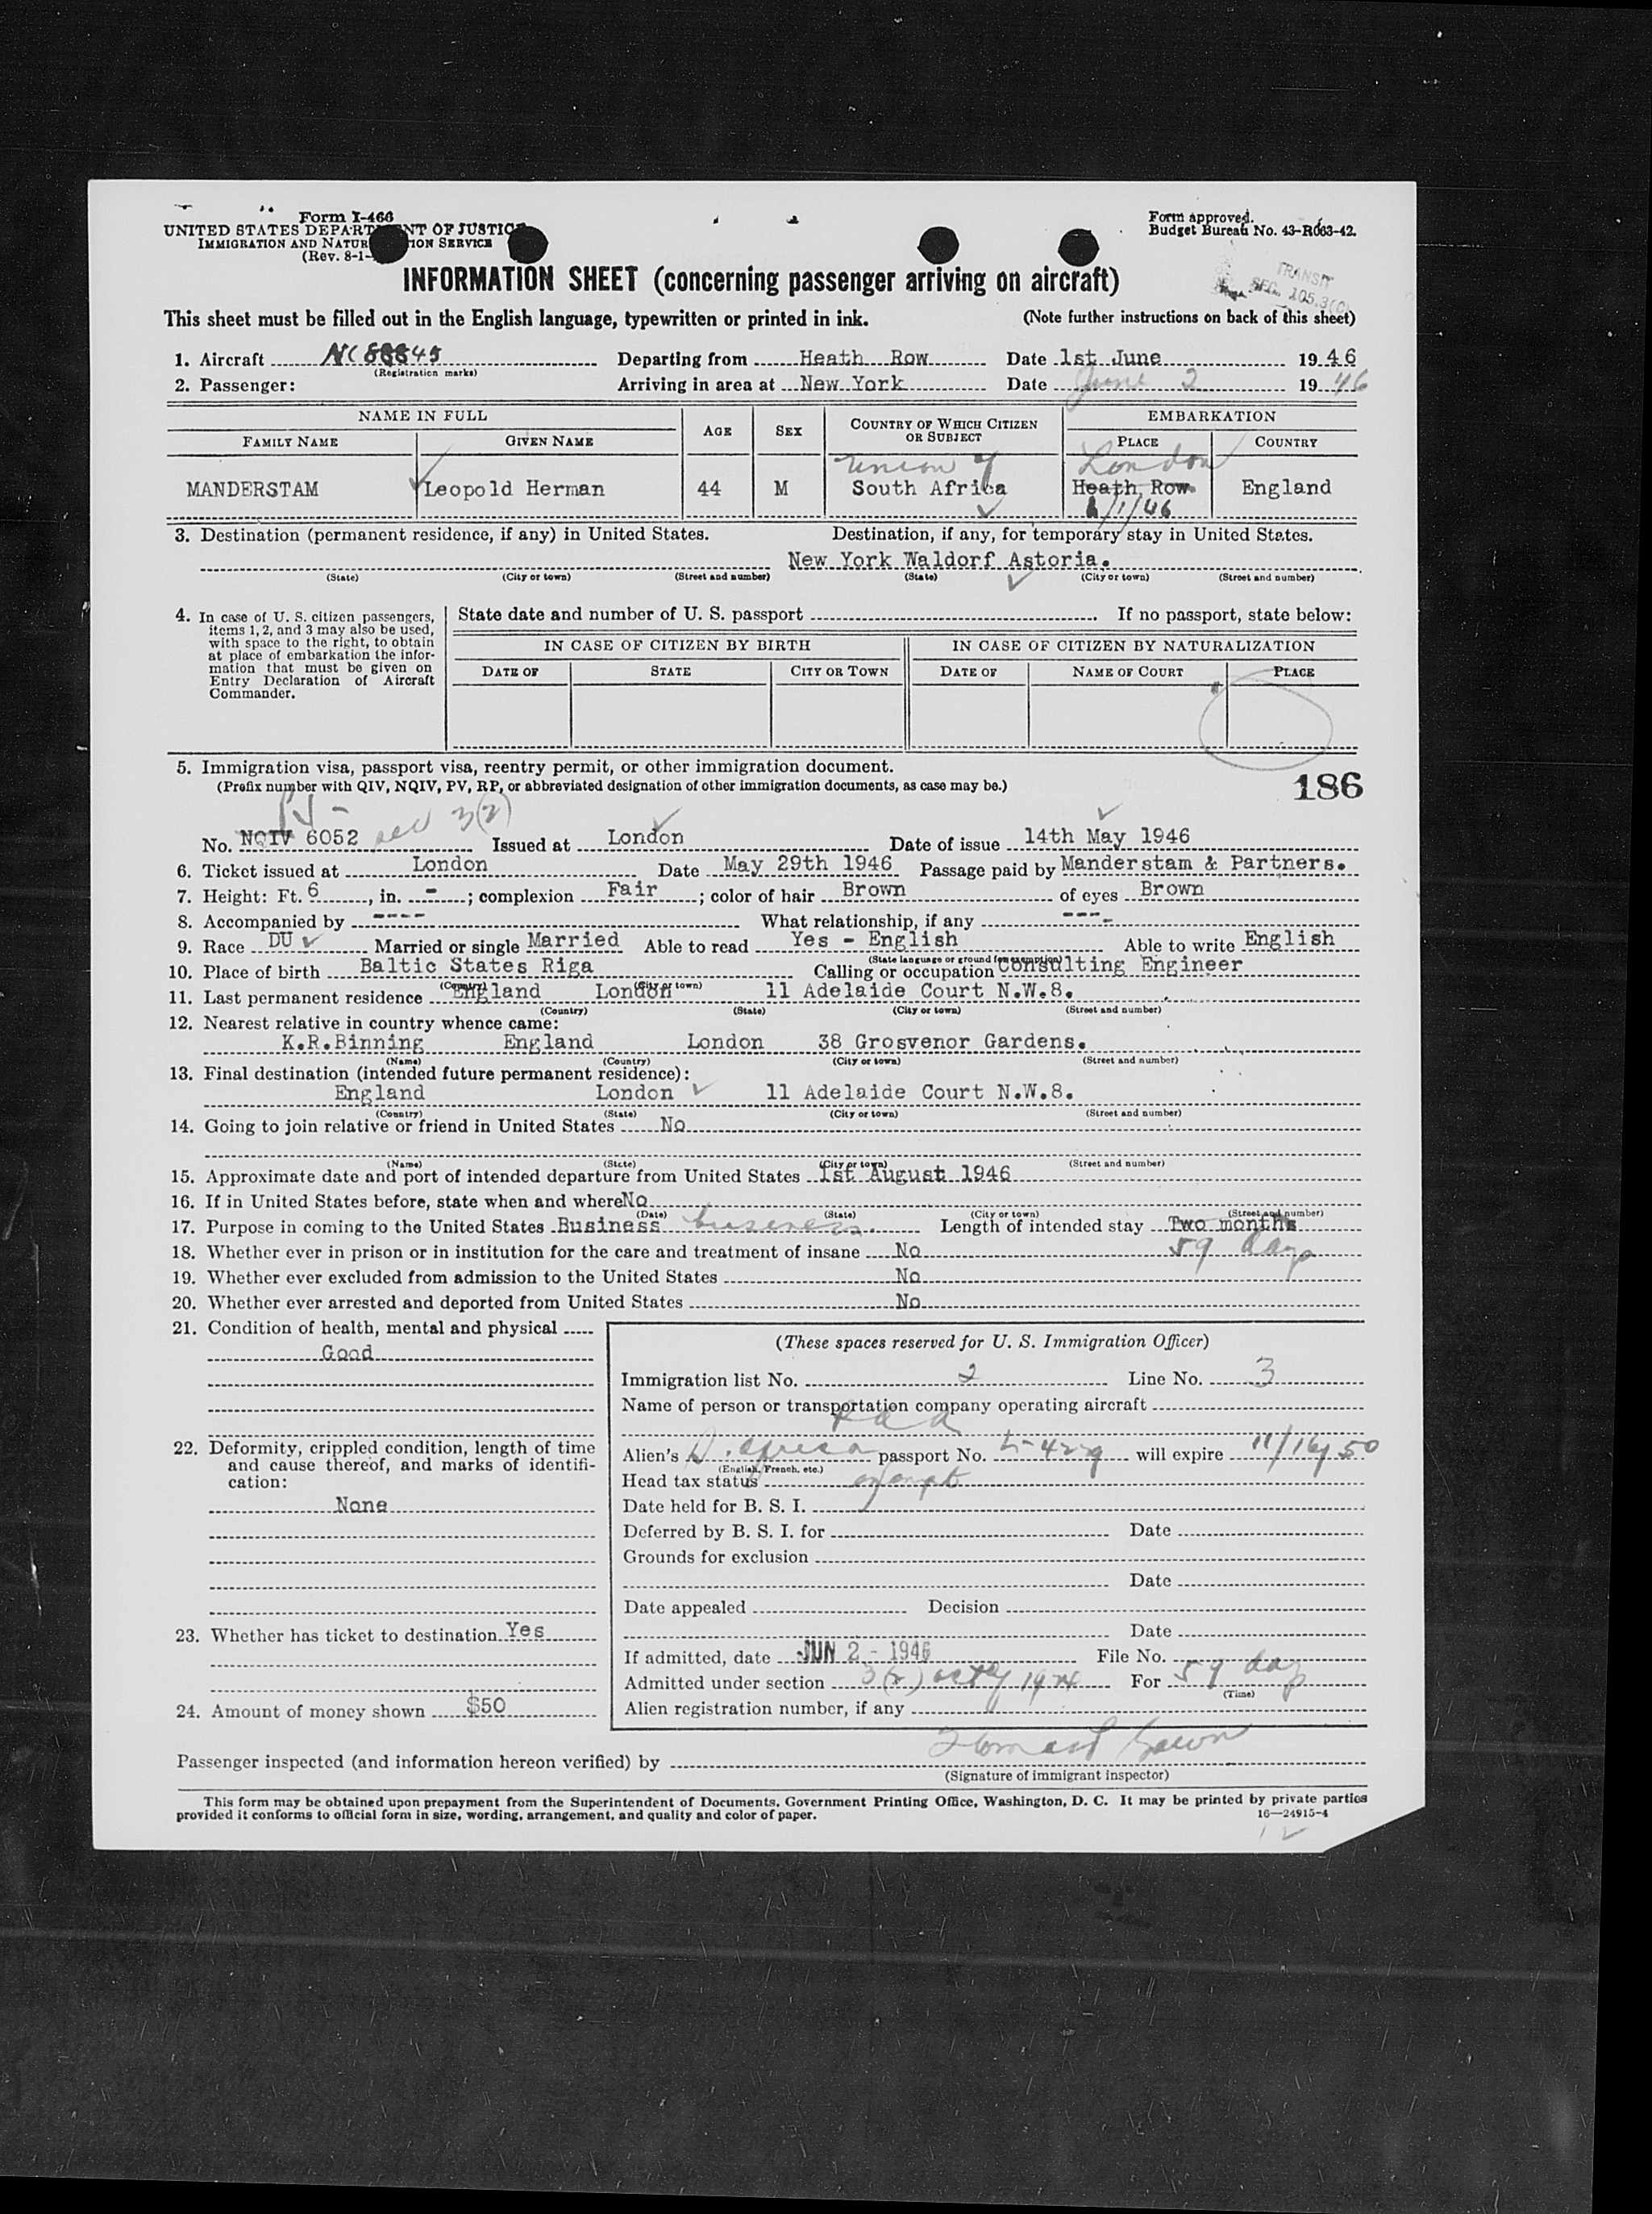 Form I-466
UNITED STATES DEPARTMENT OF JUSTICE
IMMIGRATION AND NATURALIZATION SERVICE
(Rev. 8-1-
Form approved.
Budget Bureau No. 43-R063-42.
INFORMATION SHEET (concerning passenger arriving on aircraft)
TRANSIT
SEC. 105.3(C)
This sheet must be filled out in the English language, typewritten or printed in ink. (Note further instructions on back of this sheet)
1. Aircraft NC88845 Departing from Heath Row Date 1st June 1946
(Registration marks)
2. Passenger: Arriving in area at New York Date June 2 1946
NAME IN FULL AGE SEX COUNTRY OF WHICH CITIZEN OR SUBJECT EMBARKATION
FAMILY NAME GIVEN NAME PLACE COUNTRY
Union of London
MANDERSTAM Leopold Herman 44 M South Africa Heath Row England
6/1/46
3. Destination (permanent residence, if any) in United States. Destination, if any, for temporary stay in United States.
New York Waldorf Astoria.
(State) (City or town) (Street and number) (State) (City or town) (Street and number)
4. In case of U. S. citizen passengers, items 1, 2, and 3 may also be used, with space to the right, to obtain at place of embarkation the information that must be given on Entry Declaration of Aircraft Commander.
State date and number of U. S. passport If no passport, state below:
IN CASE OF CITIZEN BY BIRTH IN CASE OF CITIZEN BY NATURALIZATION
DATE OF STATE CITY OR TOWN DATE OF NAME OF COURT PLACE
5. Immigration visa, passport visa, reentry permit, or other immigration document.
(Prefix number with QIV, NQIV, PV, RP, or abbreviated designation of other immigration documents, as case may be.)
186
PV - 3(2)
No. NQIV 6052 Issued at London Date of issue 14th May 1946
6. Ticket issued at London Date May 29th 1946 Passage paid by Manderstam & Partners.
7. Height: Ft. 6, in. -; complexion Fair; color of hair Brown of eyes Brown
8. Accompanied by ---- What relationship, if any ----
9. Race DU Married or single Married Able to read Yes - English Able to write English
(State language or ground for exemption)
10. Place of birth Baltic States Riga Calling or occupation Consulting Engineer
(Country) (City or town)
11. Last permanent residence England London 11 Adelaide Court N.W.8.
(Country) (State) (City or town) (Street and number)
12. Nearest relative in country whence came:
K.R.Binning England London 38 Grosvenor Gardens.
(Name) (Country) (City or town) (Street and number)
13. Final destination (intended future permanent residence):
England London 11 Adelaide Court N.W.8.
(Country) (State) (City or town) (Street and number)
14. Going to join relative or friend in United States No
(Name) (State) (City or town) (Street and number)
15. Approximate date and port of intended departure from United States 1st August 1946
16. If in United States before, state when and where No
(Date) (State) (City or town) (Street and number)
17. Purpose in coming to the United States Business business Length of intended stay Two months
18. Whether ever in prison or in institution for the care and treatment of insane No 59 days
19. Whether ever excluded from admission to the United States No
20. Whether ever arrested and deported from United States No
21. Condition of health, mental and physical
Good
22. Deformity, crippled condition, length of time and cause thereof, and marks of identification:
None
23. Whether has ticket to destination Yes
24. Amount of money shown $50
(These spaces reserved for U. S. Immigration Officer)
Immigration list No. 2 Line No. 3
Name of person or transportation company operating aircraft
P a a
Alien's S. Africa passport No. will expire 11/16/50
(English, French, etc.)
Head tax status exempt
Date held for B. S. I.
Deferred by B. S. I. for Date
Grounds for exclusion
Date
Date appealed Decision
Date
If admitted, date JUN 2 - 1946 File No.
Admitted under section 3(2) act of 1924 For 59 days
(Time)
Alien registration number, if any
Passenger inspected (and information hereon verified) by
(Signature of immigrant inspector)
This form may be obtained upon prepayment from the Superintendent of Documents, Government Printing Office, Washington, D. C. It may be printed by private parties
provided it conforms to official form in size, wording, arrangement, and quality and color of paper.
16—24915-4